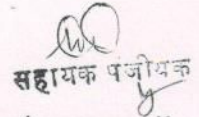 सहायक पंजीयक